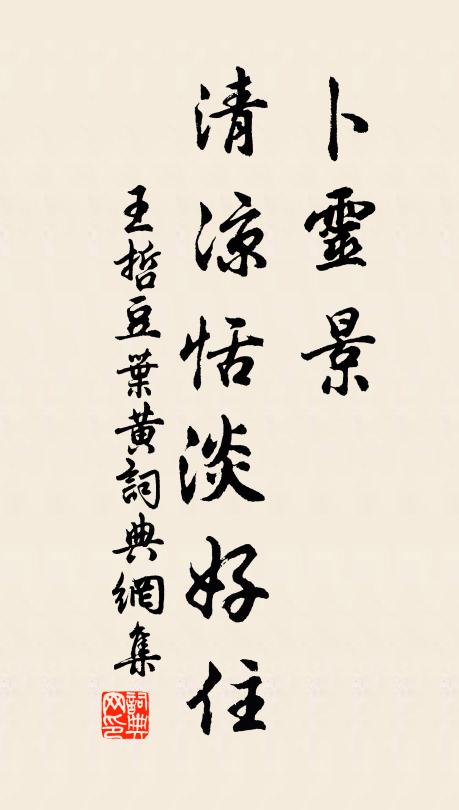 卜靈景
清涼恬淡好住
王哲豆葉黃詞典網集
詞典網印